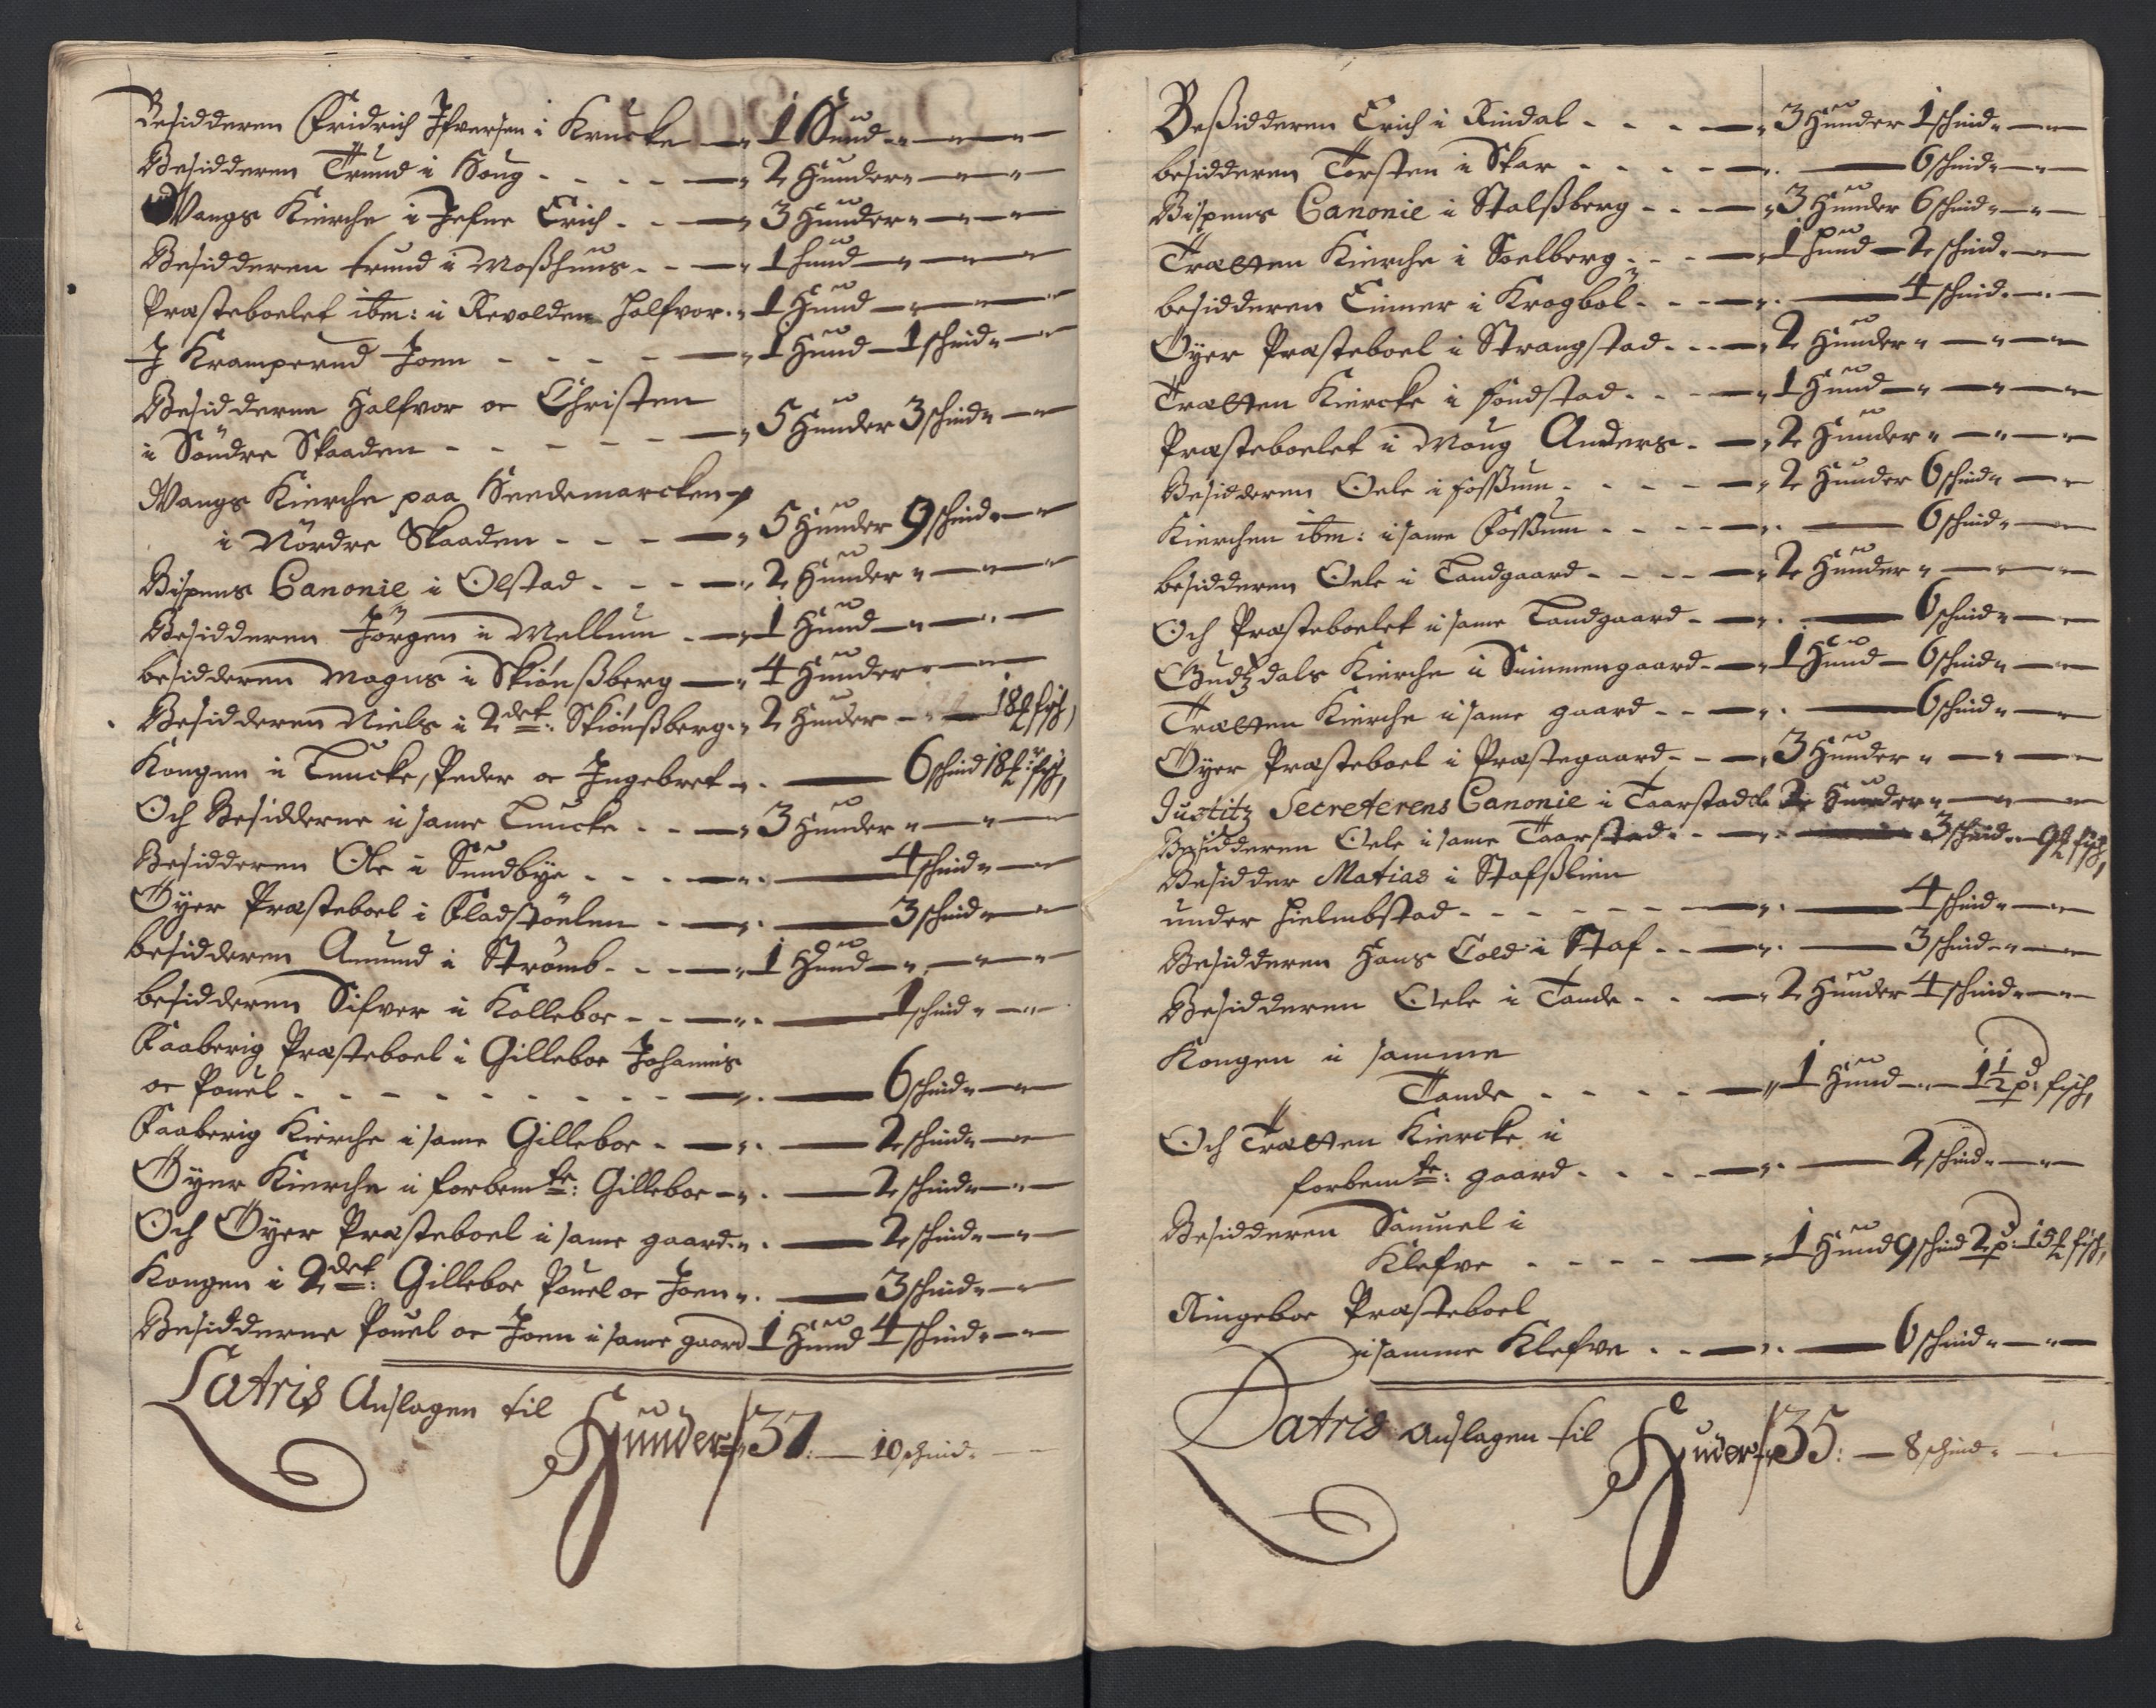 Besidderen Fridrich Ifversen i Krucke — 1 Hund
Besidderen Trund i Houg — 2 Hunder
Wangs Kierche i Jefne Erich — 3 Hunder
Besidderen Trund i Moßhuus — 1 hund
Præsteboelet ibm: i Revolden Halfvor — 1 Hund
I Krampernd Joen — 1 Hund — 1 schind
Besidderne Halfvor oc Christen
i Söndre Skaaden — 5 Hunder 3 schind
Wangs Kierche paa Heedemarcken
i Nördre Skaaden — 5 Hunder 9 schind
Bispens Canonie i Olstad — 2 Hunder
Besidderen Jörgen i Mellum — 1 Hund
besidderen Magns i Skiönßberg — 4 Hunder
Besidderen Niels i 2det: Skiönßberg — 2 Hunder — 18 fisch
Kongen i Luncke, Peder oc Ingebret — 6 schind 18 fisch
Och Besidderne i same Luncke — 3 Hunder
Besidderen Ole i Sundbye — 4 schind
Öyer Præsteboel i Fladstöelen — 3 schind
besidderen Amund i Strömb — 1 Hund
besidderen Sifver i Kolleboe — 1 schind
Faaberig Præsteboel i Gilleboe Johannis
oc Pouel — 6 schind
Faaberig Kierche i same Gilleboe — 2 schind
Öyer Kierche i forbemte: Gilleboe — 2 schind
Och Öyer Præsteboel i same gaard — 2 schind
Kongen i 2det: Gilleboe Pouel oc Joen — 3 schind
Besidderne Pouel oc Joen i same gaard 1 Hund 4 schind
Latris Anslagen til Hunder 37: — 10 schind
Beßidderen Erich i Rindal — 3 Hunder 1 schind
besidderen Torsten i Skar — 6 schind
Bispens Canonie i Stalßberg — 3 Hunder 6 schind
Trætten Kierche i Soelberg — 1 hund — 2 schind
besidderen Einner i Krogböl — 4 schind
Öyer Præsteboel i Strangstad — 2 Hunder
Trætten Kiercke i fondstad — 1 Hund
Præsteboelet i Moug Anders — 2 Hunder
Besidderen Oele i foßum — 2 Hunder 6 schind
Kierchen ibm: i same Foßum — 6 schind
besidderen Oele i Landgaard — 2 Hunder
Och Præsteboelet i same Landgaard — 6 schind
Gudzdals Kierche i Suimmengaard — 1 Hund — 6 schind
Trætten Kierche i same gaard — 6 schind
Öyer Præsteboel i Præstegaard — 3 Hunder
Justitz Secreterens Canonie i Taarstad 2 Hunder
Besidderen Oele i same Taarstad — 3 schind 9 fisch
Besidder Matias i Stafßlien
under Hielmbstad — 4 schind
Besidderen Hans Cold i Staf — 3 schind
Besidderen Oele i Tande — 2 Hunder 4 schind
Kongen i samme
Tande — 1 Hund — 1½ p: fisch
Och Trætten Kiercke i
forbemte: gaard — 2 schind
Besidderen Samuel i
Klefve — 1 Hund 9 schind 2 p: fisch
Ringeboe Præsteboel
i samme Klefve — 6 schind
Latris anslagen til Huder 35: — 8 schind